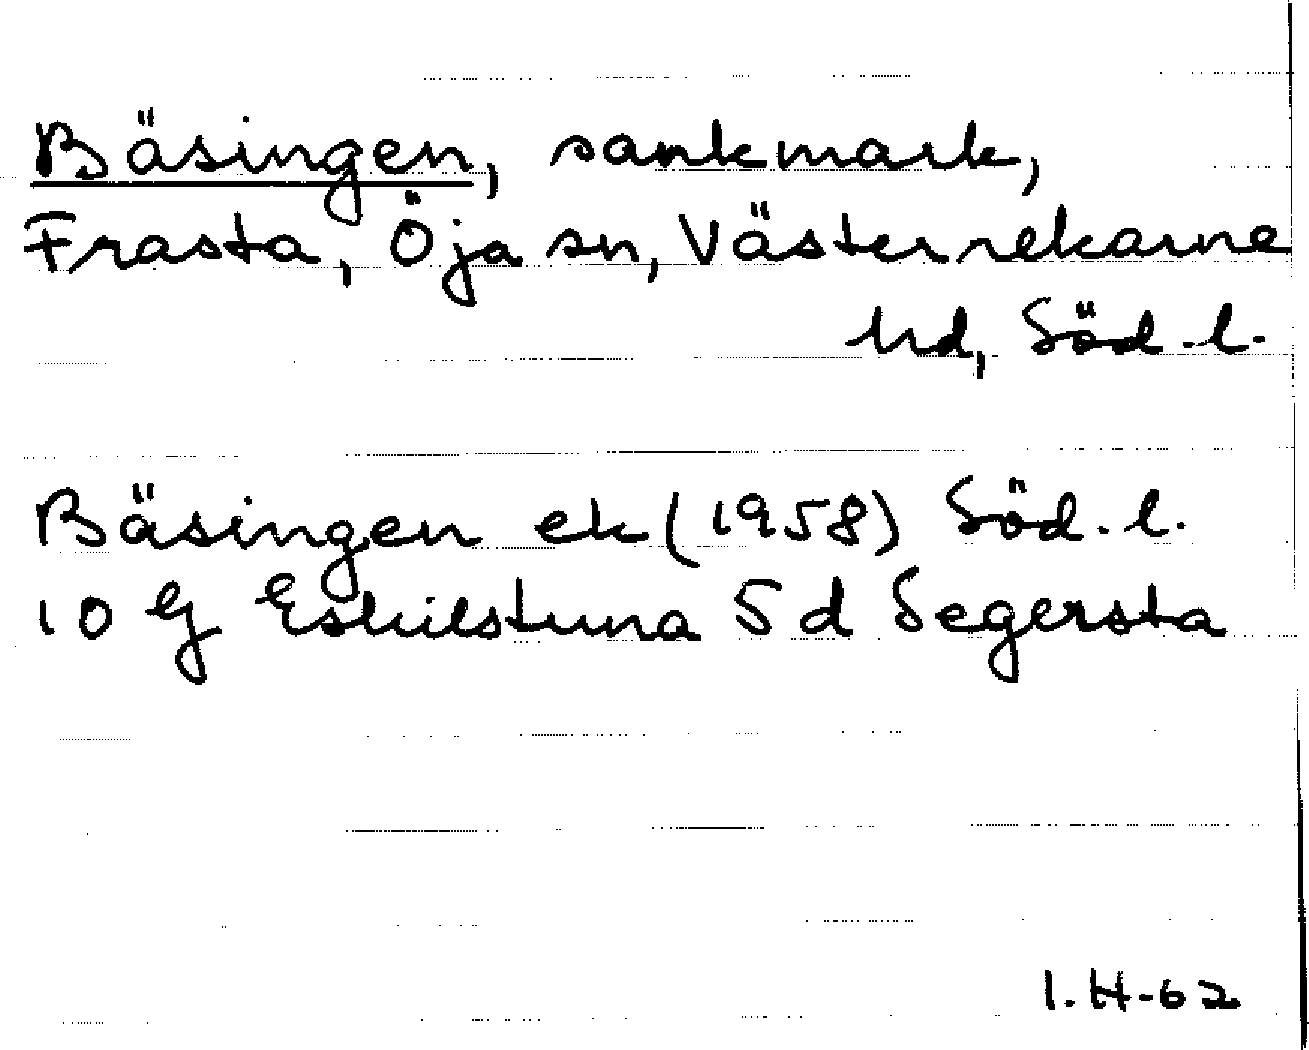 Bäsingen, sankmark,
Frasta, Öja sn, Västerrekarne
hd, Söd.l.
Bäsingen ek (1958) Söd.l.
10 G Eskilstuna 5 d Segersta
I.H-62